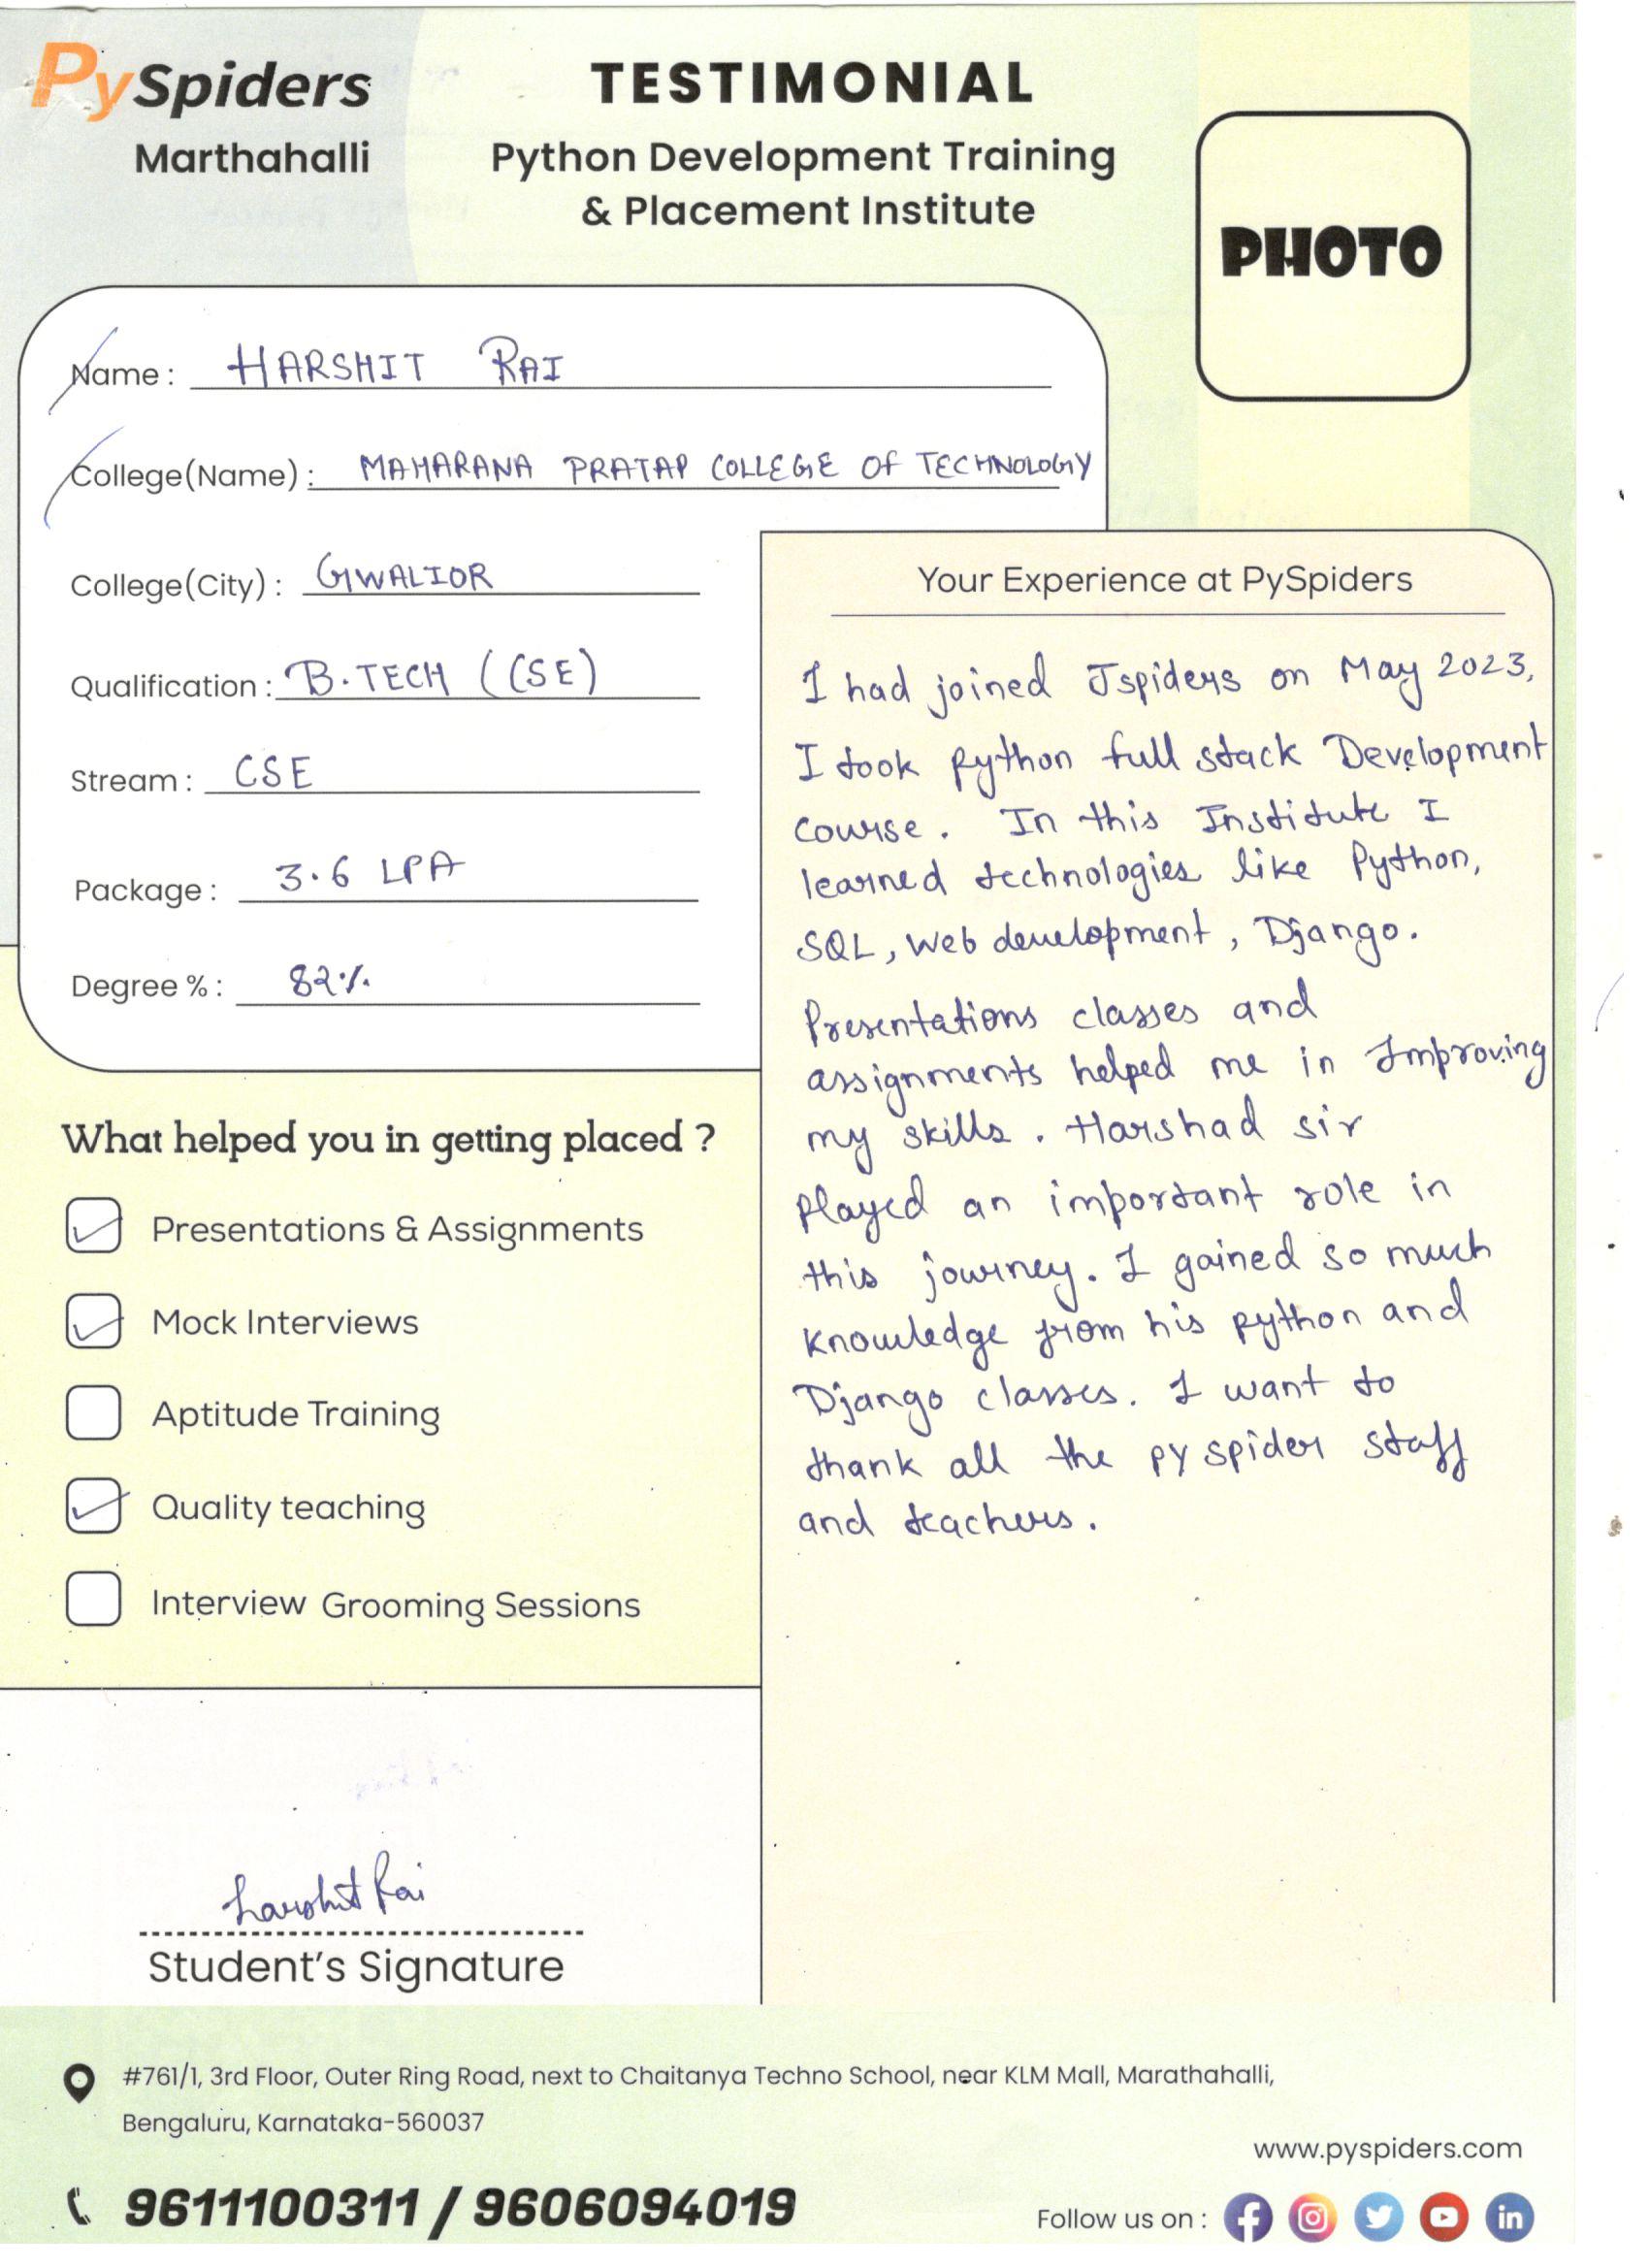 PySpiders
Marthahalli
TESTIMONIAL
Python Development Training
& Placement Institute
PHOTO
Name : HARSHIT RAI
College(Name) : MAHARANA PRATAP COLLEGE OF TECHNOLOGY
College(City) : GWALIOR
Qualification : B.TECH (CSE)
Stream : CSE
Package : 3.6 LPA
Degree % : 82%
What helped you in getting placed ?
Presentations & Assignments
Mock Interviews
Aptitude Training
Quality teaching
Interview Grooming Sessions
Harshit Rai
Student's Signature
Your Experience at PySpiders
I had joined Jspiders on May 2023,
I took python full stack Development
course. In this Institute I
learned technologies like Python,
SQL, Web development, Django.
Presentations classes and
assignments helped me in Improving
my skills. Harshad sir
played an important role in
this journey. I gained so much
knowledge from his python and
Django classes. I want to
thank all the py spider staff
and teachers.
#761/1, 3rd Floor, Outer Ring Road, next to Chaitanya Techno School, near KLM Mall, Marathahalli,
Bengaluru, Karnataka-560037
www.pyspiders.com
9611100311 / 9606094019
Follow us on :